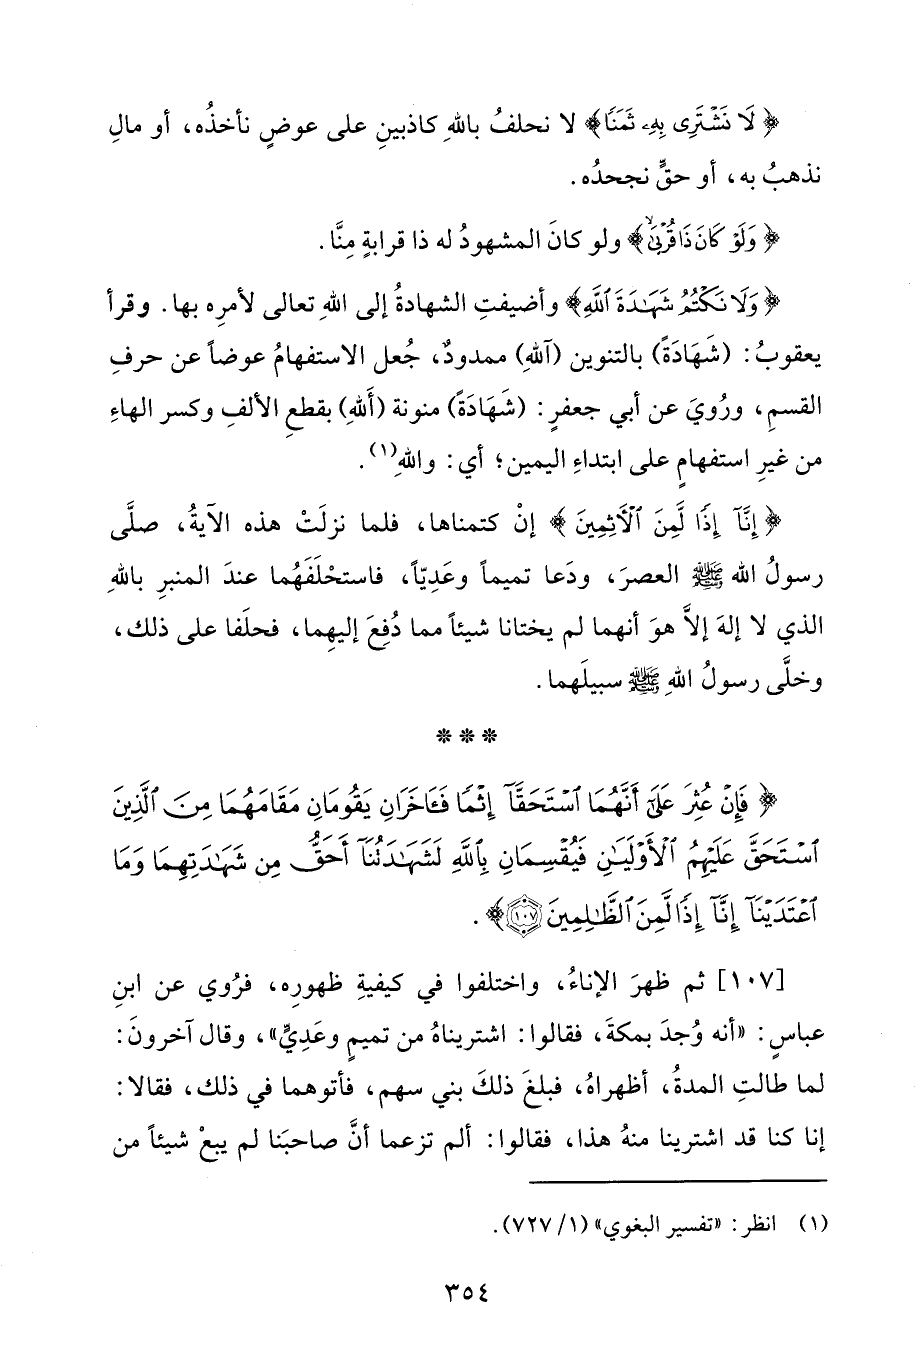 ﴿ لَا نَشْتَرِى بِهِۦ ثَمَنًا﴾ لا نحلفُ باللهِ كاذبينِ على عوضٍ نأخذُه، أو مالٍ
نذهبُ به، أو حقٍّ نجحدُه.
﴿ وَلَوْ كَانَ ذَا قُرْبَىٰۙ﴾ ولو كانَ المشهودُ له ذا قرابةٍ مِنَّا.
﴿وَلَا نَكْتُمُ شَهَـٰدَةَ ٱللَّهِ﴾ وأضيفتِ الشهادةُ إلى اللهِ تعالى لأمرِه بها. وقرأ
يعقوبُ: (شَهَادَةً) بالتنوين (آللهِ) ممدودٌ، جُعل الاستفهامُ عوضاً عن حرفِ
القسمِ، ورُويَ عن أبي جعفرٍ: (شَهَادَةً) منونة (أَللهِ) بقطعِ الألفِ وكسر الهاءِ
من غيرِ استفهامٍ على ابتداءِ اليمين؛ أي: واللهِ(١).
﴿ إِنَّآ إِذًا لَّمِنَ ٱلْـَٔاثِمِينَ ﴾ إنْ كتمناها، فلما نزلَتْ هذه الآيةُ، صلَّى
رسولُ الله ﷺ العصرَ، ودَعا تميماً وعَدِيّاً، فاستحْلَفَهُما عندَ المنبرِ باللهِ
الذي لا إلهَ إلاَّ هوَ أنهما لم يختانا شيئاً مما دُفِعَ إليهِما، فحلَفا على ذلك،
وخلَّى رسولُ اللهِ ﷺ سبيلَهما.
* * *
﴿ فَإِنْ عُثِرَ عَلَىٰٓ أَنَّهُمَا ٱسْتَحَقَّآ إِثْمًا فَـَٔاخَرَانِ يَقُومَانِ مَقَامَهُمَا مِنَ ٱلَّذِينَ
ٱسْتَحَقَّ عَلَيْهِمُ ٱلْأَوْلَيَـٰنِ فَيُقْسِمَانِ بِٱللَّهِ لَشَهَـٰدَتُنَآ أَحَقُّ مِن شَهَـٰدَتِهِمَا وَمَا
ٱعْتَدَيْنَآ إِنَّآ إِذًا لَّمِنَ ٱلظَّـٰلِمِينَ ﴿١٠٧﴾﴾.
[١٠٧] ثم ظهرَ الإناءُ، واختلفوا في كيفيةِ ظهورِه، فرُوي عن ابنِ
عباسٍ: «أنه وُجدَ بمكةَ، فقالوا: اشتريناهُ من تميمٍ وعَدِيٍّ»، وقال آخرونَ:
لما طالتِ المدةُ، أظهراهُ، فبلغَ ذلكَ بني سهم، فأتوهما في ذلك، فقالا:
إنا كنا قد اشترينا منهُ هذا، فقالوا: ألم تزعما أنَّ صاحبَنا لم يبعْ شيئاً من
(١) انظر: «تفسير البغوي» (١/ ٧٢٧).
٣٥٤